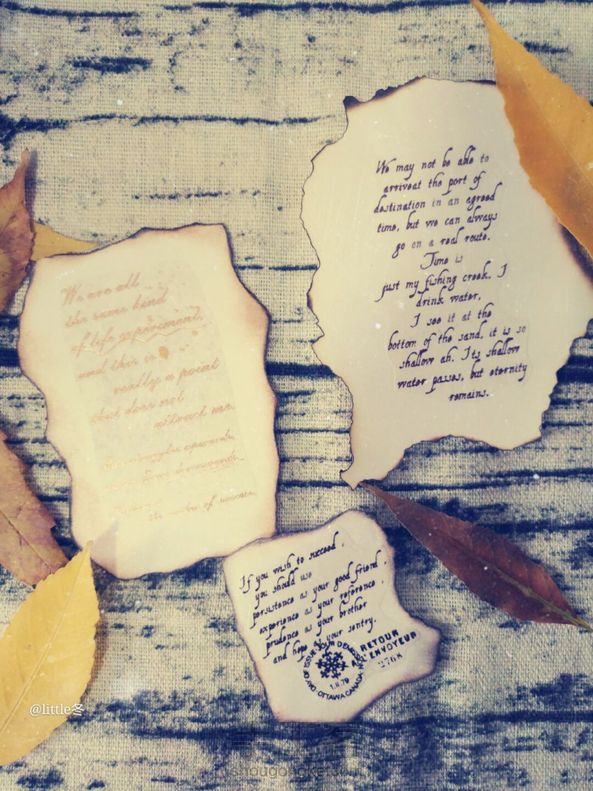 We may not be able to
arriveat the port of
destination in an agreed
time, but we can always
go on a real route.
Time is
just my fishing creek. I
drink water,
I see it at the
bottom of the sand, it is so
shallow ah. Its shallow
water passes, but eternity
remains.
We are all
the same kind
of life experiment,
and this is
really a point
that does not
attract me.
If you wish to succeed,
you should use
persistence as your good friend,
experience as your reference,
prudence as your brother
and hope as your sentry.
RETOUR
A L'ENVOYEUR
2768
1.8.79
OTTAWA CANADA
@little冬